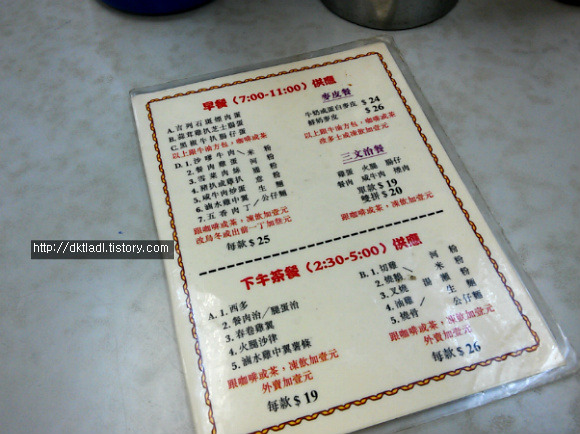 早餐（7:00-11:00）供應
A. 吉列石蛋燒肉蛋
B. 蒜茸雞扒芝士腸蛋
C. 黑椒牛扒腸仔蛋
以上跟牛油方包，咖啡或茶
D. 1. 沙嗲牛肉 米粉
2. 餐肉雞蛋 河粉
3. 雪菜肉絲 通粉
4. 豬扒或雞扒 意粉
5. 咸牛肉炒蛋 生麵
6. 滷水雞中翼
7. 五香肉丁 公仔麵
跟咖啡或茶，凍飲加壹元
改烏冬或出前一丁加叁元
每款 $ 25
麥皮餐
牛奶或蛋白麥皮 $ 24
鮮奶麥皮 $ 26
以上跟牛油方包，咖啡或茶
改多士或凍飲加壹元
三文治餐
雞蛋 火腿 腸仔
餐肉 咸牛肉 燒肉
單款 $ 19
雙拼 $ 20
跟咖啡或茶，凍飲加壹元
http://dktladl.tistory.com
下午茶餐（2:30-5:00）供應
A. 1. 西多
2. 餐肉治／腿蛋治
3. 春卷雞翼
4. 火腿沙律
5. 滷水雞中翼薯條
跟咖啡或茶，凍飲加壹元
外賣加壹元
每款 $ 19
B. 1. 切雞 河粉
2. 燒鵝 米粉
3. 叉燒 湯 瀨粉
4. 油雞 生麵
5. 燒骨 公仔麵
跟咖啡或茶，凍飲加壹元
外賣加壹元
每款 $ 26